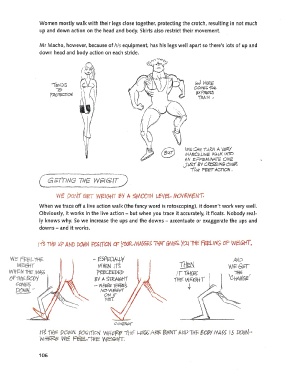 Women mostly walk with their legs close together, protecting the crotch, resulting in not much
up and down action on the head and body. Skirts also restrict their movement.
Mr Macho, however, because of his equipment, has his legs well apart so there's lots of up and
down head and body action on each stride.
TENDS
TO
HERE
COMES THE
EXPRESS
TRAIN -
BUT
WE CAN TURN A VERY
MASCULINE WALK INTO
AN EFFEMINATE ONE
JUST BY CROSSING OVER
THE FEET ACTION.
GETTING THE WEIGHT
WE DON'T GET WEIGHT BY A SMOOTH LEVEL MOVEMENT.
When we trace off a live action walk (the fancy word is rotoscoping), it doesn't work very well.
Obviously, it works in the live action – but when you trace it accurately, it floats. Nobody real-
ly knows why. So we increase the ups and the downs – accentuate or exaggerate the ups and
downs – and it works.
IT'S THE UP AND DOWN POSITION OF YOUR MASSES THAT GIVES YOU THE FEELING OF WEIGHT.
WE FEEL THE
WEIGHT
WHEN THE MASS
OF THE BODY
COMES
DOWN -
- ESPECIALLY
WHEN IT'S
PRECEEDED
BY A STRAIGHT
- WHERE THERE'S
NO WEIGHT
ON IT
YET
CONTACT
THEN
IT TAKES
THE WEIGHT
AND
WE GET
THE
'CHANGE'
IT'S THE DOWN POSITION WHERE THE LEGS ARE BENT AND THE BODY MASS IS DOWN -
WHERE WE FEEL THE WEIGHT.
106